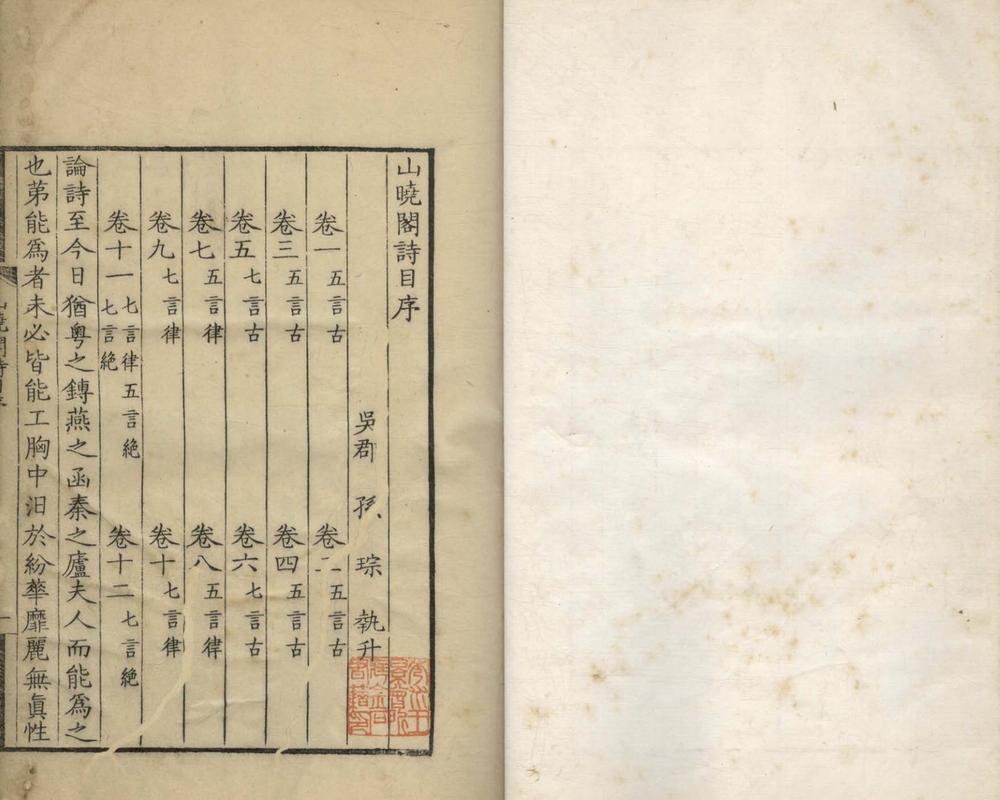 山曉閣詩目序
吳郡 孫 琮 執升
卷一 五言古 卷二 五言古
卷三 五言古 卷四 五言古
卷五 七言古 卷六 七言古
卷七 五言律 卷八 五言律
卷九 七言律 卷十 七言律
卷十一 七言律五言絕七言絕 卷十二 七言絕
論詩至今日猶粵之鎛燕之函秦之廬夫人而能爲之
也苐能爲者未必皆能工胸中汩於紛華靡麗無眞性